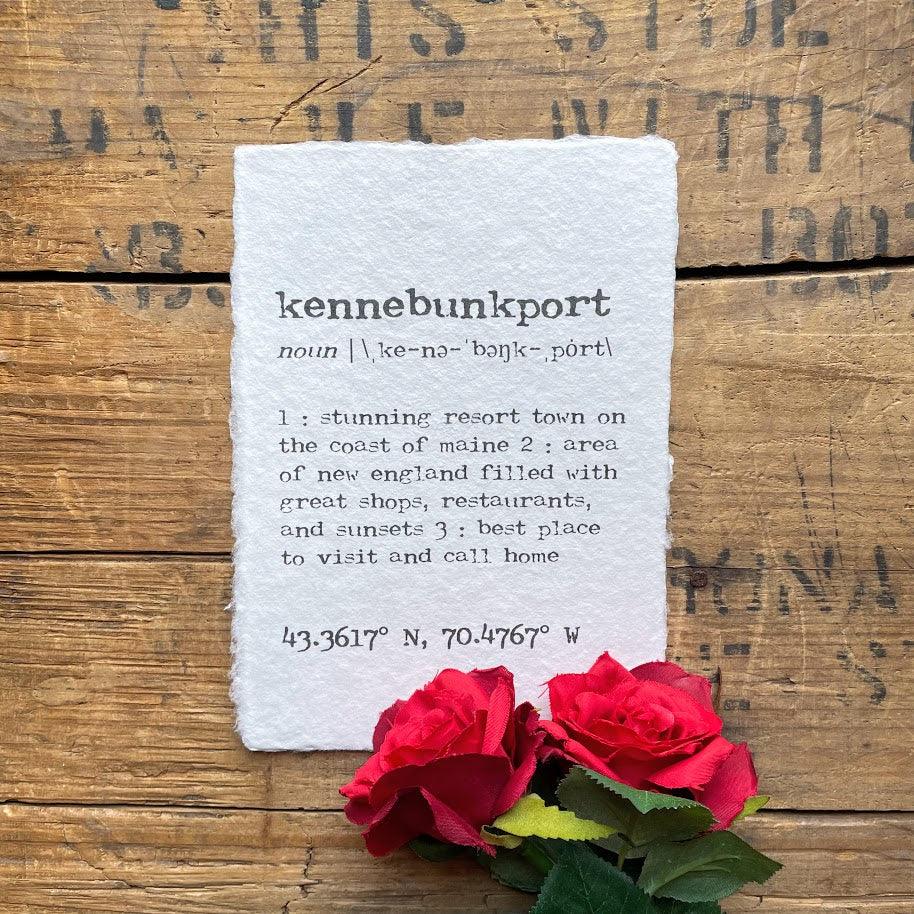 kennebunkport
noun |\ˌke-nə-ˈbəŋk-ˌpȯrt\
1 : stunning resort town on
the coast of maine 2 : area
of new england filled with
great shops, restaurants,
and sunsets 3 : best place
to visit and call home
43.3617° N, 70.4767° W